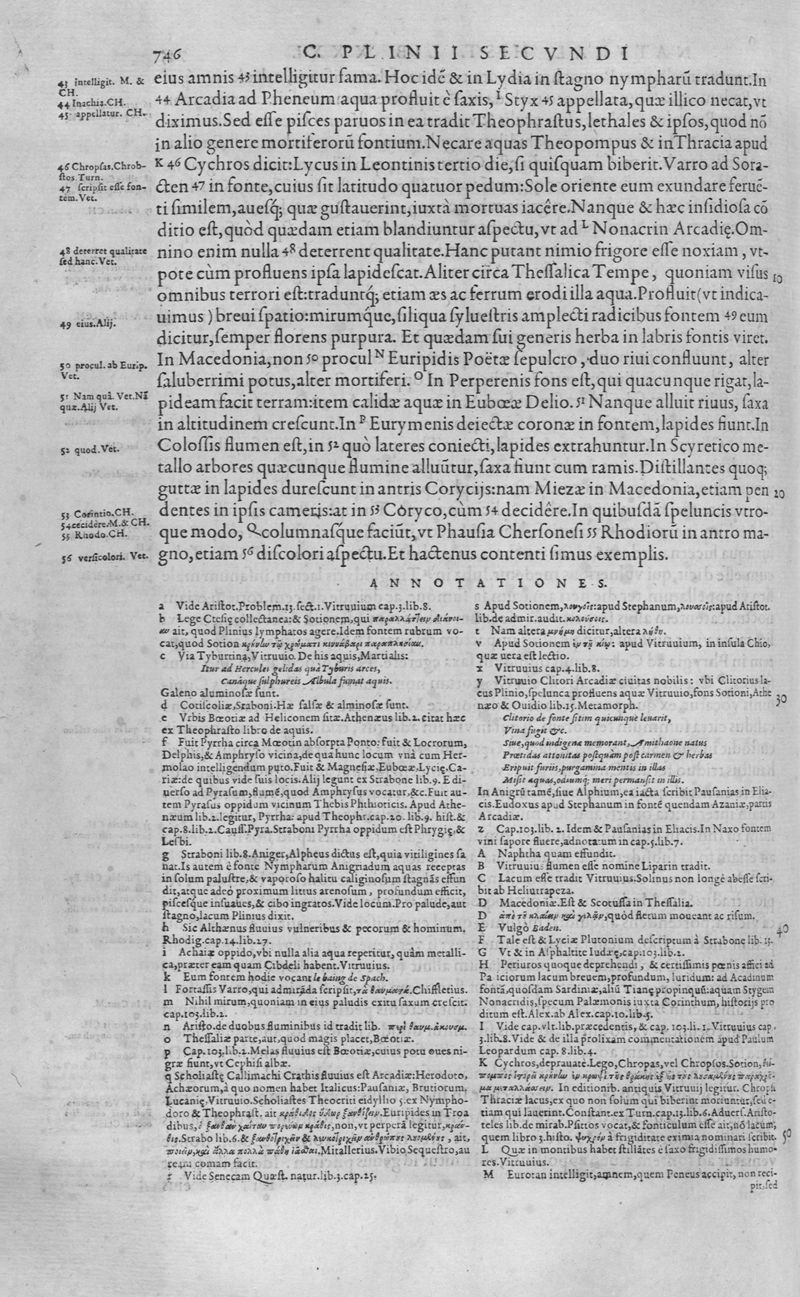 746 C. PLINII SECVNDI
43 intelligit. M. &
CH.
44 Inachia.CH.
45 appellatur. CH.
46 Chropsas.Chrob-
stos.Turn.
47 scripsit esse fon-
tem.Vet.
48 deterret qualitate
sed hanc.Vet.
49 eius.Alij.
50 procul.ab Eurip.
Vet.
51 Nam quâ. Vet.Nã
quæ.Alij Vet.
52 quod.Vet.
53 Corintio.CH.
54 cecidére.M.& CH.
55 Rhodo.CH.
56 versicolori. Vet.
eius amnis 43 intelligitur fama. Hoc idẽ & in Lydia in stagno nympharũ tradunt.In
44 Arcadia ad Pheneum aqua profluit è saxis, I Styx 45 appellata, quæ illico necat,vt
diximus.Sed esse pisces paruos in ea tradit Theophrastus,lethales & ipsos,quod nõ
in alio genere mortiferorũ fontium.Necare aquas Theopompus & inThracia apud
K 46 Cychros dicit:Lycus in Leontinis tertio die,si quisquam biberit.Varro ad Sora-
cten 47 in fonte,cuius sit latitudo quatuor pedum:Sole oriente eum exundare feruẽ-
ti similem,auesq; quæ gustauerint,iuxtà mortuas iacére.Nanque & hæc insidiosa cõ
ditio est,quòd quædam etiam blandiuntur aspectu,vt ad L Nonacrin Arcadię.Om-
nino enim nulla 48 deterrent qualitate.Hanc putant nimio frigore esse noxiam, vt-
pote cùm profluens ipsa lapidescat.Aliter circa Thessalica Tempe, quoniam visus 10
omnibus terrori est:traduntq; etiam æs ac ferrum erodi illa aqua.Profluit(vt indica-
uimus ) breui spatio:mirumque,siliqua syluestris amplecti radicibus fontem 49 eum
dicitur,semper florens purpura. Et quædam sui generis herba in labris fontis viret.
In Macedonia,non 50 procul N Euripidis Poëtæ sepulcro , duo riui confluunt, alter
saluberrimi potus,alter mortiferi. O In Perperenis fons est,qui quacunque rigat,la-
pideam facit terram:item calidæ aquæ in Eubœæ Delio. 51 Nanque alluit riuus, saxa
in altitudinem crescunt.In P Eurymenis deiectæ coronæ in fontem,lapides fiunt.In
Colossis flumen est,in 52 quò lateres coniecti,lapides extrahuntur.In Scyretico me-
tallo arbores quæcunque flumine alluũtur,saxa fiunt cum ramis.Distillantes quoq;
guttæ in lapides durescunt in antris Corycijs:nam Miezæ in Macedonia,etiam pen 20
dentes in ipsis camerjs:at in 53 Còryco,cùm 54 decidére.In quibusdã speluncis vtro-
que modo, Qcolumnasque faciũt,vt Phausia Chersonesi 55 Rhodiorũ in antro ma-
gno,etiam 56 discolori aspectu.Et hactenus contenti simus exemplis.
ANNOTATIONES.
a Vide Aristot.Problem.13.sect.1.Vitruuium cap.3.lib.8.
b Lege Ctesię collectanea:& Sotionem,qui
ait, quod Plinius lymphatos agere.Idem fontem rubrum vo-
cat,quod Sotion
c Via Tyburtina,Vitruuio.De his aquis,Martialis:
Itur ad Herculeı gelidas quà Tyburis arces,
Canáque sulphureis Albula fumat aquis.
Galeno aluminosæ sunt.
d Cotiscoliæ,Straboni.Hæ salsæ & alminosæ sunt.
e Vrbis Bœotiæ ad Heliconem sitæ.Athenæus lib.2.citat hæc
ex Theophrasto libro de aquis.
f Fuit Pyrrha circa Mœotin absorpta Ponto: fuit & Locrorum,
Delphis,& Amphryso vicina,de qua hunc locum vnà cum Her-
molao intelligendum puto.Fuit & Magnesiæ,Eubœæ,Lycię,Ca-
riæ:de quibus vide suis locis.Alij legunt ex Strabone lib.9. E di-
uerso ad Pyrasum,flumẽ,quod Amphrysus vocatur,&c.Fuit au-
tem Pyrasus oppidum vicinum Thebis Phthioticis. Apud Athe-
næum lib.2.legitur, Pyrrha: apud Theophr.cap.20. lib.9. hist.&
cap.8.lib.2.Causs.Pyra.Straboni Pyrrha oppidum est Phrygię,&
Lesbi.
g Straboni lib.8.Aniger,Alpheus dictus est,quia vitiligines sa
nat.Is autem è fonte Nympharum Anigriadum aquas receptas
in solum palustre,& vaporoso halitu caliginosum stagnãs effun
dit,atque adeò proximum littus arenosum , profundum efficit,
piscesque insuaues,& cibo ingratos.Vide locum.Pro palude,aut
stagno,lacum Plinius dixit.
h Sic Althænus fluuius vulneribus & pecorum & hominum.
Rhodig.cap.14.lib.27.
i Achaiæ oppido,vbi nulla alia aqua repetitur, quàm metalli-
ca,præter eam quam Cibdeli habent.Vitruuius.
k Eum fontem hodie vocant le baing de Spach.
l Fortassis Varro,qui admirãda scripsit, .Chiffletius.
m Nihil mirum,quoniam in eius paludis exitu saxum crescit.
cap.103.lib.2.
n Aristo.de duobus fluminibus id tradit lib.
o Thessaliæ parte,aut,quod magis placet,Bœotiæ.
p Cap.103.lib.2.Melas fluuius est Bœotiæ,cuius potu oues ni-
græ fiunt,vt Cephisi albæ.
q Scholiastę Callimachi Crathis fluuius est Arcadiæ:Herodoto,
Achæorum,à quo nomen habet Italicus:Pausaniæ, Brutiorum,
Lucanię,Vitruuio.Scholiastes Theocriti eidyllio 5.ex Nympho-
doro & Theophrast. ait .Euripides in Troa
dibus, ,non,vt perperã legitur,
.Strabo lib.6.& , ait,
.Mitallerius.Vibio Sequestro,au
ream comam facit.
r Vide Senecam Quæst. natur.lib.3.cap.25.
s Apud Sotionem, :apud Stephanum, :apud Aristot.
lib.de admir.audit.
t Nam altera dicitur,altera
v Apud Sotionem : apud Vitruuium, in insula Chio,
quæ vera est lectio.
x Vitruuius cap.4.lib.8.
y Vitruuio Clitori Arcadiæ ciuitas nobilis : vbi Clitorius la-
cus Plinio,spelunca profluens aquæ Vitruuio,fons Sotioni,Athe
næo & Ouidio lib.15.Metamorph. 30
Clitorio de fonte sitim quicunque leuarit,
Vina fugit &c.
Siue,quod indigenæ memorant,Amithaone natus
Prœtidas attonitas postquàm per carmen & herbas
Eripuit furiis,purgamina mentis in illas
Misit aquas,odiumq; meri permansit in illis.
In Anigrũ tamẽ,siue Alphium,ea iacta scribit Pausanias in Elia-
cis.Eudoxus apud Stephanum in fontẽ quendam Azaniæ,partis
Arcadiæ.
z Cap.103.lib. 2. Idem & Pausanias in Eliacis.In Naxo fontem
vini sapore fluere,adnotatum in cap.5.lib.7.
A Naphtha quam effundit.
B Vitruuius flumen esse nomine Liparin tradit.
C Lacum esse tradit Vitruuius.Solinus non longè abesse scri-
bit ab Heliutrapeza.
D Macedoniæ.Est & Scotussa in Thessalia.
D ,quòd fletum moueant ac risum.
E Vulgò Baden. 40
F Tale est & Lyciæ Plutonium descriptum à Strabone lib. 13.
G Vt & in Alphaltite Iudææ,cap.103.lib.2.
H Periuros quoque deprehendi , & certissimis pœnis affici ad
Pa iciorum lacum breuem,profundum, luridum: ad Acadinum
fontẽ,quosdam Sardiniæ,aliũ Tianę propinquũ:aquam Stygem
Nonacridis,specum Palæmonis iuxta Corinthum, historijs pro
ditum est.Alex.ab Alex.cap.10.lib.5.
I Vide cap.vlt.lib.præcedentis,& cap. 103.li. 2.Vitruuius cap.
3.lib.8.Vide & de illa prolixam commentationem apud Paulum
Leopardum cap. 8.lib.4.
K Cychros,deprauatè.Lego,Chropas,vel Chropsos.Sotion,
. In editionib. antiquis Vitruuij legitur. Chrops
Thraciæ lacus,ex quo non solùm qui biberint moriuntur,sed e-
tiam qui lauerint.Constant.ex Turn.cap.13.lib.6.Aduers.Aristo-
teles lib.de mirab.Psittos vocat,& fonticulum esse ait,nõ lacum;
quem libro 3.histo. à frigiditate eximia nominari scribit. 50
L Quæ in montibus habet stillãtes è saxo frigidissimos humo-
res.Vitruuius.
M Eurotan intelligit,amnem,quem Peneus accipit, non reci-
pit,sed